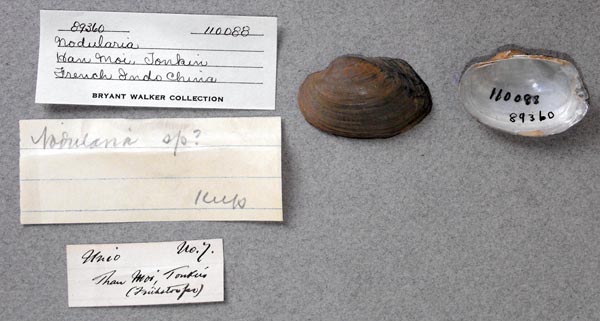 89360 110088
Nodularia
Han Moi, Tonkin
French Indo China
BRYANT WALKER COLLECTION
Nodularia sp?
Keep
Unio No. 7.
Than Moi, Tonkin
110088
89360